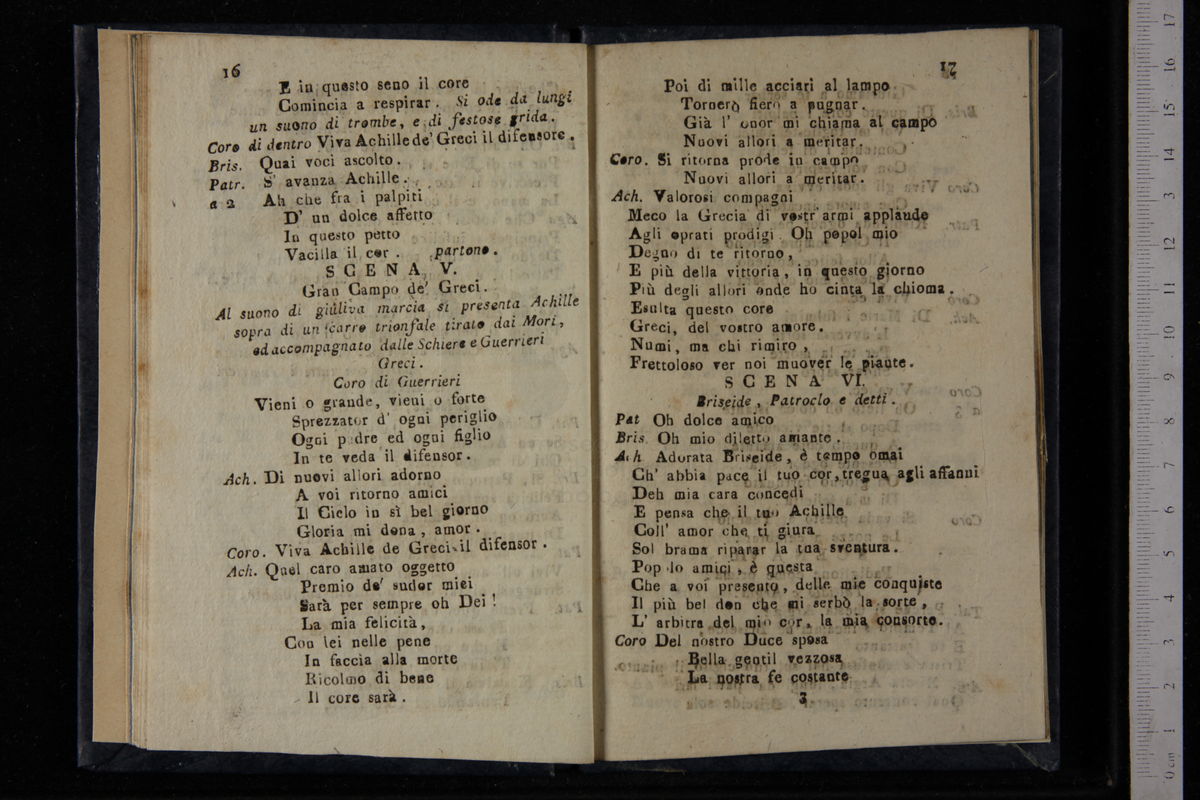 16
E in questo seno il core
Comincia a respirar. Si ode da lungi
un suono di trombe, e di festose grida.
Coro di dentro Viva Achille de' Greci il difensore.
Bris. Quai voci ascolto.
Patr. S' avanza Achille.
a 2 Ah che fra i palpiti
D' un dolce affetto
In questo petto
Vacilla il cor. partono.
SCENA V.
Gran Campo de' Greci.
Al suono di giuliva marcia si presenta Achille
sopra di un carro trionfale tirato dai Mori,
ed accompagnato dalle Schiere e Guerrieri
Greci.
Coro di Guerrieri
Vieni o grande, vieni o forte
Sprezzator d' ogni periglio
Ogni padre ed ogni figlio
In te veda il difensor.
Ach. Di nuovi allori adorno
A voi ritorno amici
Il Cielo in sì bel giorno
Gloria mi dona, amor.
Coro. Viva Achille de Greci il difensor.
Ach. Quel caro amato oggetto
Premio de' sudor miei
Sarà per sempre oh Dei!
La mia felicità,
Con lei nelle pene
In faccia alla morte
Ricolmo di bene
Il core sarà.
17
Poi di mille acciari al lampo
Tornerò fiero a pugnar.
Già l' onor mi chiama al campo
Nuovi allori a meritar.
Coro. Si ritorna prode in campo
Nuovi allori a meritar.
Ach. Valorosi compagni
Meco la Grecia di vostr' armi applaude
Agli oprati prodigi. Oh popol mio
Degno di te ritorno,
E più della vittoria, in questo giorno
Più degli allori onde ho cinta la chioma.
Esulta questo core
Greci, del vostro amore.
Numi, ma chi rimiro,
Frettoloso ver noi muover le piante.
SCENA VI.
Briseide, Patroclo e detti.
Pat Oh dolce amico
Bris. Oh mio diletto amante.
Ach Adorata Briseide, è tempo omai
Ch' abbia pace il tuo cor, tregua agli affanni
Deh mia cara concedi
E pensa che il tuo Achille
Coll' amor che ti giura
Sol brama riparar la tua sventura.
Popolo amici, è questa
Che a voi presento, delle mie conquiste
Il più bel don che mi serbò la sorte,
L' arbitra del mio cor, la mia consorte.
Coro Del nostro Duce sposa
Bella gentil vezzosa
La nostra fe costante
3
0 cm 1 2 3 4 5 6 7 8 9 10 11 12 13 14 15 16 17